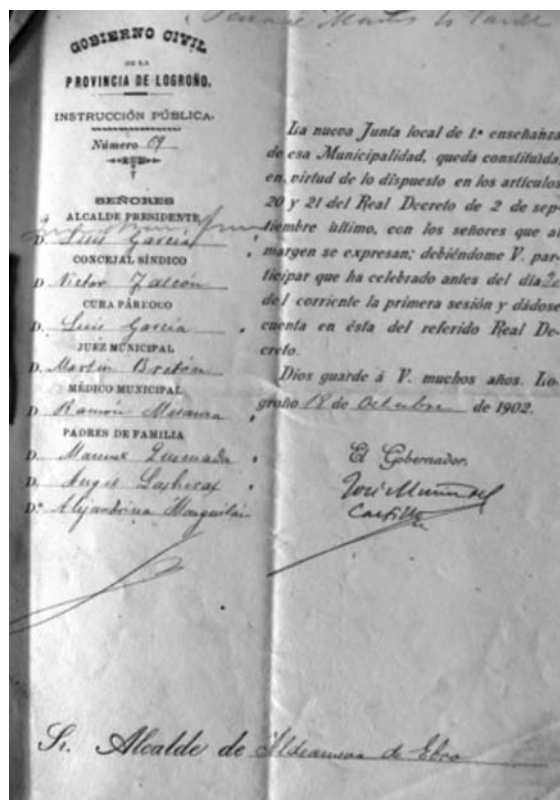 Martes
GOBIERNO CIVIL
DE LA
PROVINCIA DE LOGROÑO.
INSTRUCCIÓN PÚBLICA.
Número 69
SEÑORES
ALCALDE PRESIDENTE
D. Luis García
CONCEJAL SÍNDICO
D. Victor Falcón
CURA PÁRROCO
D. Luis García
JUEZ MUNICIPAL
D. Martin Bretón
MÉDICO MUNICIPAL
D. Ramón
PADRES DE FAMILIA
D. Manuel Quemada
D. Angel
D.ª Alejandrina
La nueva Junta local de 1.ª enseñanza
de esa Municipalidad, queda constituída,
en virtud de lo dispuesto en los artículos
20 y 21 del Real Decreto de 2 de sep-
tiembre último, con los señores que al
margen se expresan; debiéndome V. par-
ticipar que ha celebrado antes del día
del corriente la primera sesión y dádose
cuenta en ésta del referido Real De-
creto.
Dios guarde á V. muchos años. Lo-
groño 18 de Octubre de 1902.
El Gobernador.
José Muñoz del
Castillo
Sr. Alcalde de Aldeanueva de Ebro